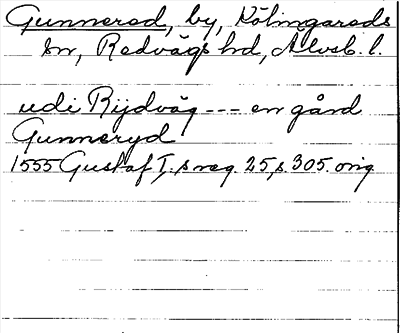 Gunnered, by, Kölingareds
sn, Redvägs hd, Älvsb. l.
udi Rijdväg --- en gård
Gunneryd
1555 Gustaf I:s reg. 25, s. 305. orig.